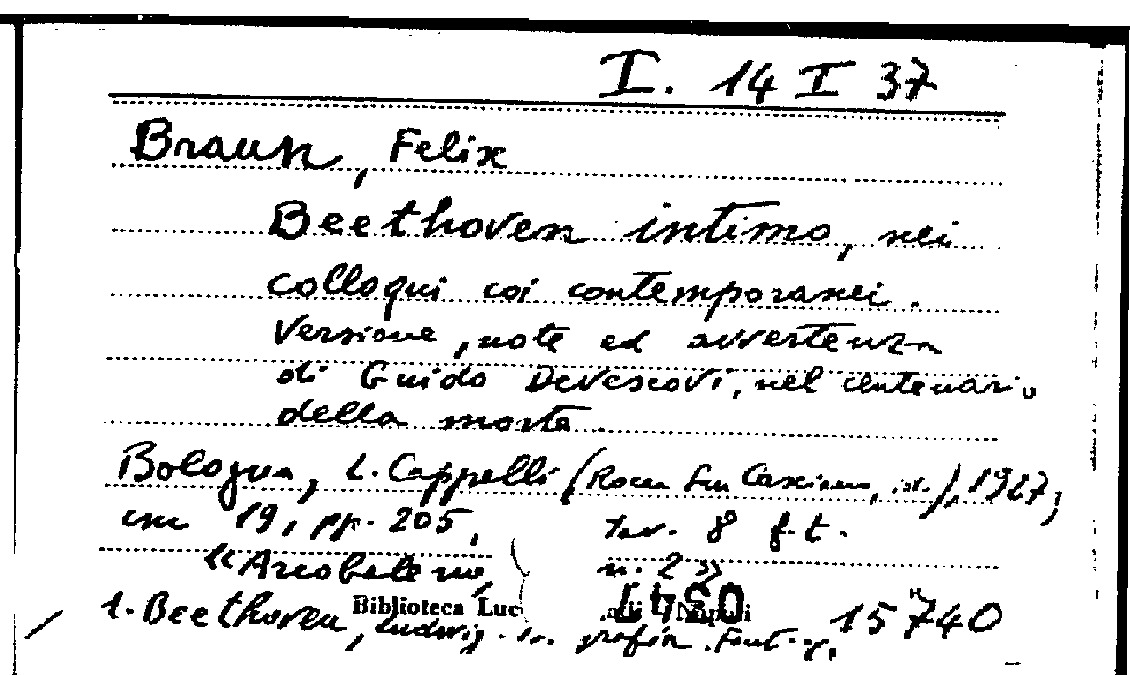 I. 14 I 37
Braun, Felix
Beethoven intimo, nei
colloqui coi contemporanei.
Versione, note ed avvertenza
di Guido Devescovi, nel centenario
della morte.
Bologna, L. Cappelli (Rocca San Casciano, id.), 1927,
cm 19, pp. 205, tav. 8 f. t.
"Arcobaleno", n. 2"
1. Beethoven, Ludwig 15740
Biblioteca Luc